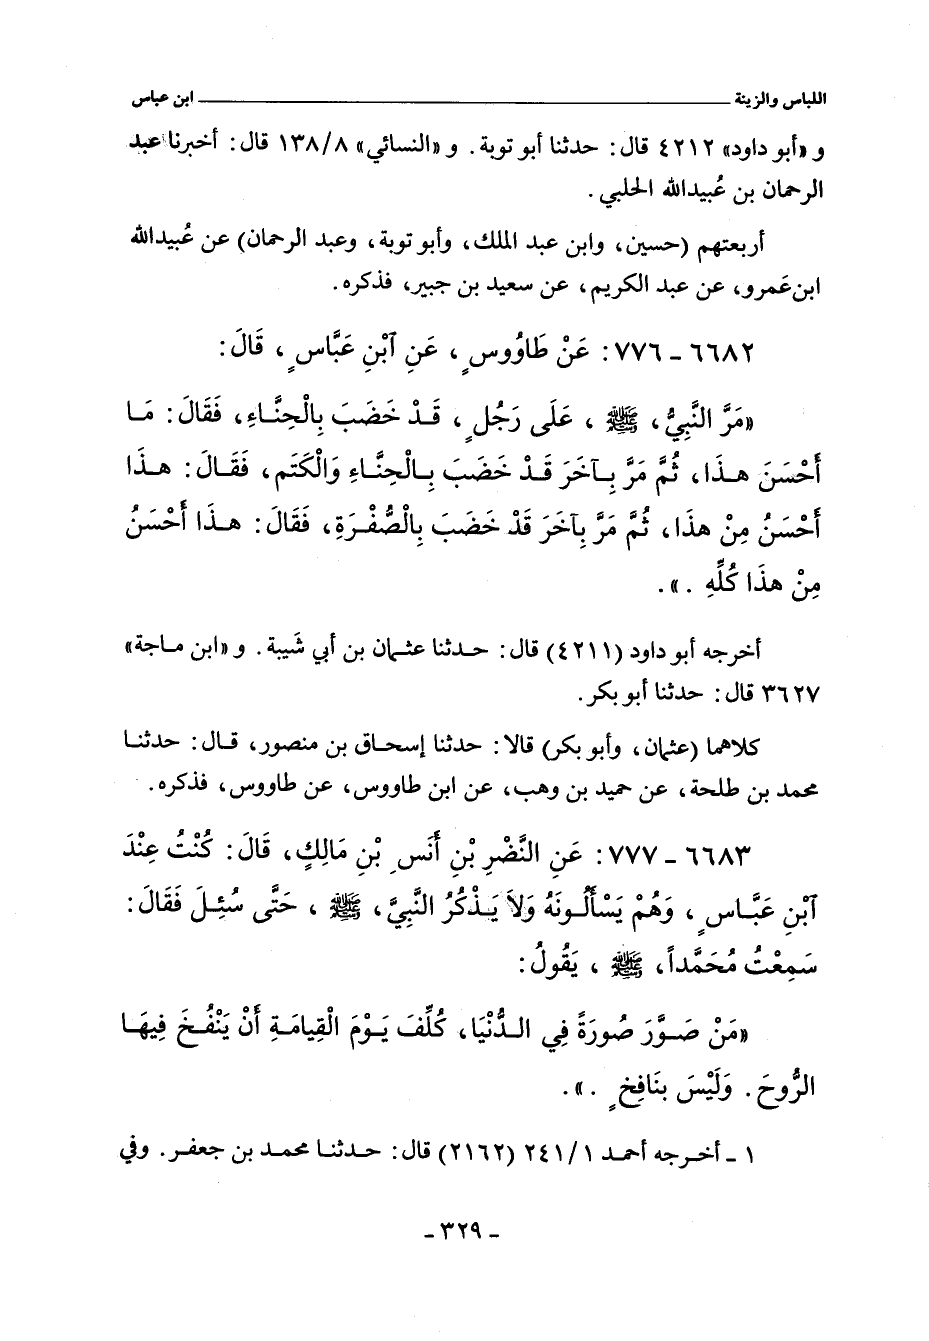 اللباس والزينة ـــــــــــــــــــــــــــــــــــــــ ابن عباس
و «أبو داود» ٤٢١٢ قال: حدثنا أبو توبة. و «النسائي» ١٣٨/٨ قال: أخبرنا عبد
الرحمان بن عُبيدالله الحلبي.
أربعتهم (حسين، وابن عبد الملك، وأبو توبة، وعبد الرحمان) عن عُبيدالله
ابن عَمرو، عن عبد الكريم، عن سعيد بن جبير، فذكره.
٦٦٨٢ - ٧٧٦: عَنْ طَاوُوسٍ، عَنِ ٱبْنِ عَبَّاسٍ، قَالَ:
«مَرَّ النَّبِيُّ، ﷺ، عَلَى رَجُلٍ، قَدْ خَضَبَ بِالْحِنَّاءِ، فَقَالَ: مَا
أَحْسَنَ هـذَا، ثُمَّ مَرَّ بِآخَرَ قَدْ خَضَبَ بِالْحِنَّاءِ وَالْكَتَمِ، فَقَالَ: هـذَا
أَحْسَنُ مِنْ هذَا، ثُمَّ مَرَّ بِآخَرَ قَدْ خَضَبَ بِالصُّفْرَةِ، فَقَالَ: هـذَا أَحْسَنُ
مِنْ هذَا كُلِّهِ.».
أخرجه أبو داود (٤٢١١) قال: حدثنا عثمان بن أبي شَيبة. و «ابن ماجة»
٣٦٢٧ قال: حدثنا أبو بكر.
كلاهما (عثمان، وأبو بكر) قالا: حدثنا إسحاق بن منصور، قال: حدثنا
محمد بن طلحة، عن حميد بن وهب، عن ابن طاووس، عن طاووس، فذكره.
٦٦٨٣ - ٧٧٧: عَنِ النَّضْرِ بْنِ أَنَسِ بْنِ مَالِكٍ، قَالَ: كُنْتُ عِنْدَ
ٱبْنِ عَبَّاسٍ، وَهُمْ يَسْأَلُونَهُ وَلاَ يَذْكُرُ النَّبِيَّ، ﷺ، حَتَّى سُئِلَ فَقَالَ:
سَمِعْتُ مُحَمَّداً، ﷺ، يَقُولُ:
«مَنْ صَوَّرَ صُورَةً فِي الدُّنْيَا، كُلِّفَ يَوْمَ الْقِيامَةِ أَنْ يَنْفُخَ فِيهَا
الرُّوحَ. وَلَيْسَ بِنَافِخٍ.».
١ - أخرجه أحمد ٢٤١/١ (٢١٦٢) قال: حدثنا محمد بن جعفر. وفي
- ٣٢٩ -